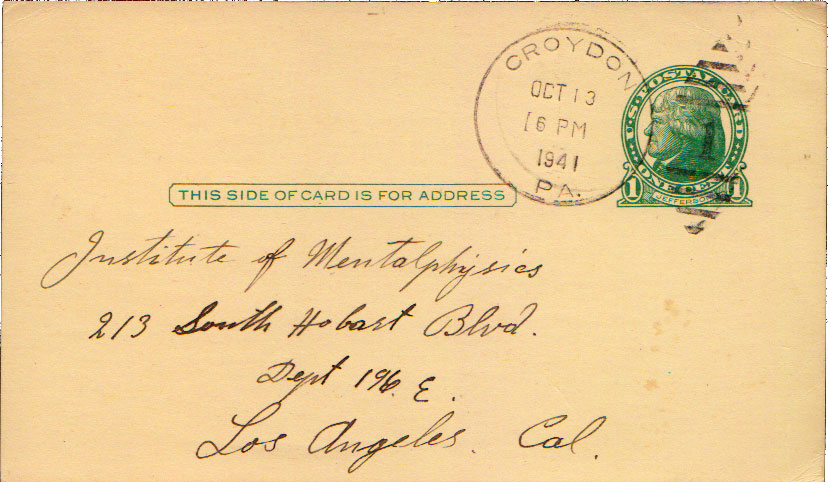 CROYDON
OCT 13
6 PM
1941
PA.
U.S. POSTAL CARD
ONE CENT
1 JEFFERSON 1
THIS SIDE OF CARD IS FOR ADDRESS
Institute of Mentalphysics
213 South Hobart Blvd.
Dept 196. E.
Los Angeles. Cal.